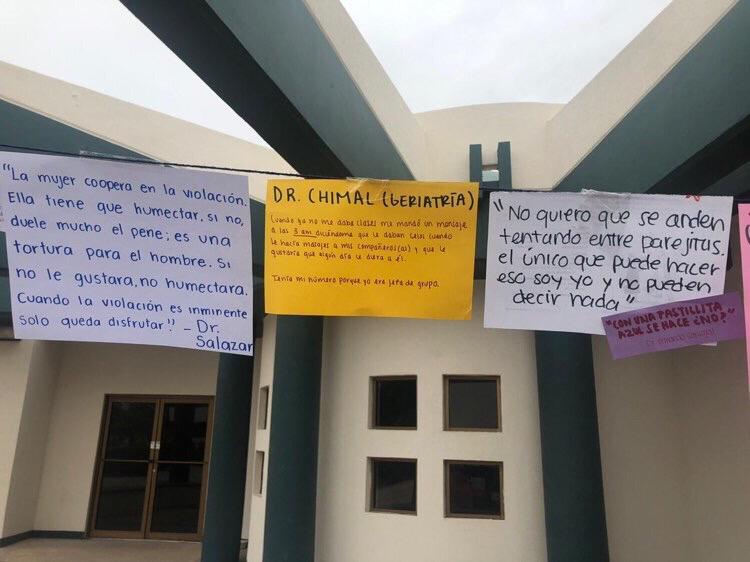 "La mujer coopera en la violación.
Ella tiene que humectar, si no,
duele mucho el pene; es una
tortura para el hombre. Si
no le gustara, no humectara.
Cuando la violación es inminente
solo queda disfrutar" - Dr.
Salazar
DR. CHIMAL (GERIATRÍA)
Cuando ya no me daba clases me mandó un mensaje
a las 3 am diciéndome que le daban celos cuando
le hacía masajes a mis compañeros(as) y que le
gustaría que algún día le diera a él.
Tenía mi número porque yo era jefa de grupo.
"No quiero que se anden
tentando entre parejitas.
el único que puede hacer
eso soy yo y no pueden
decir nada"
"CON UNA PASTILLITA
AZUL SE HACE ¿NO?"